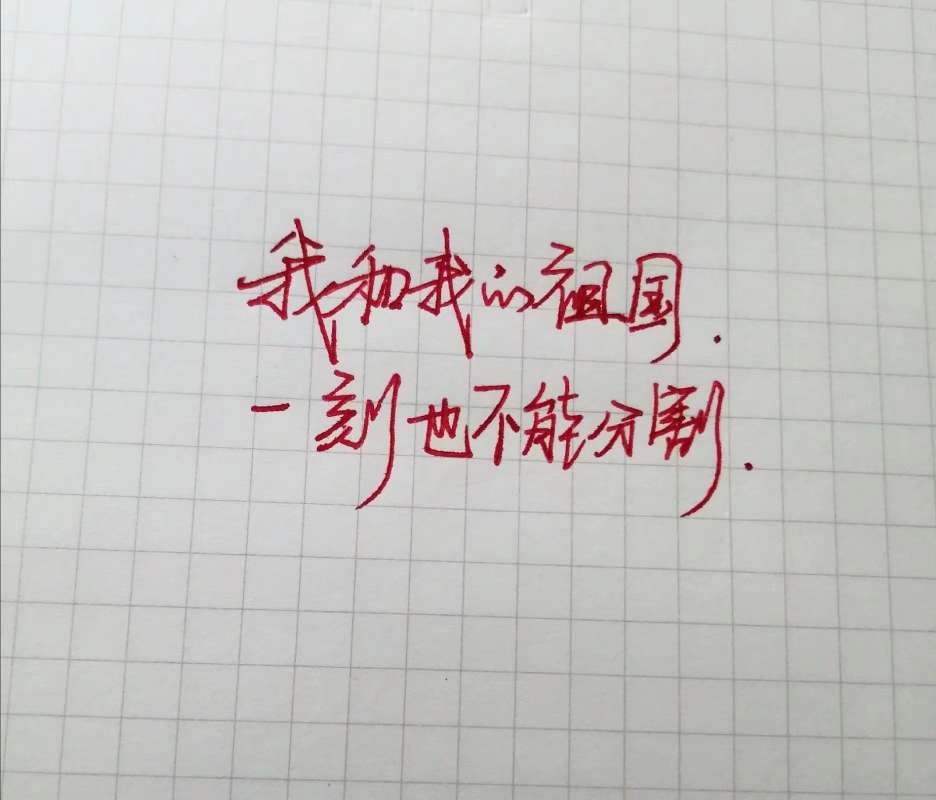 我和我的祖国.
一刻也不能分割.